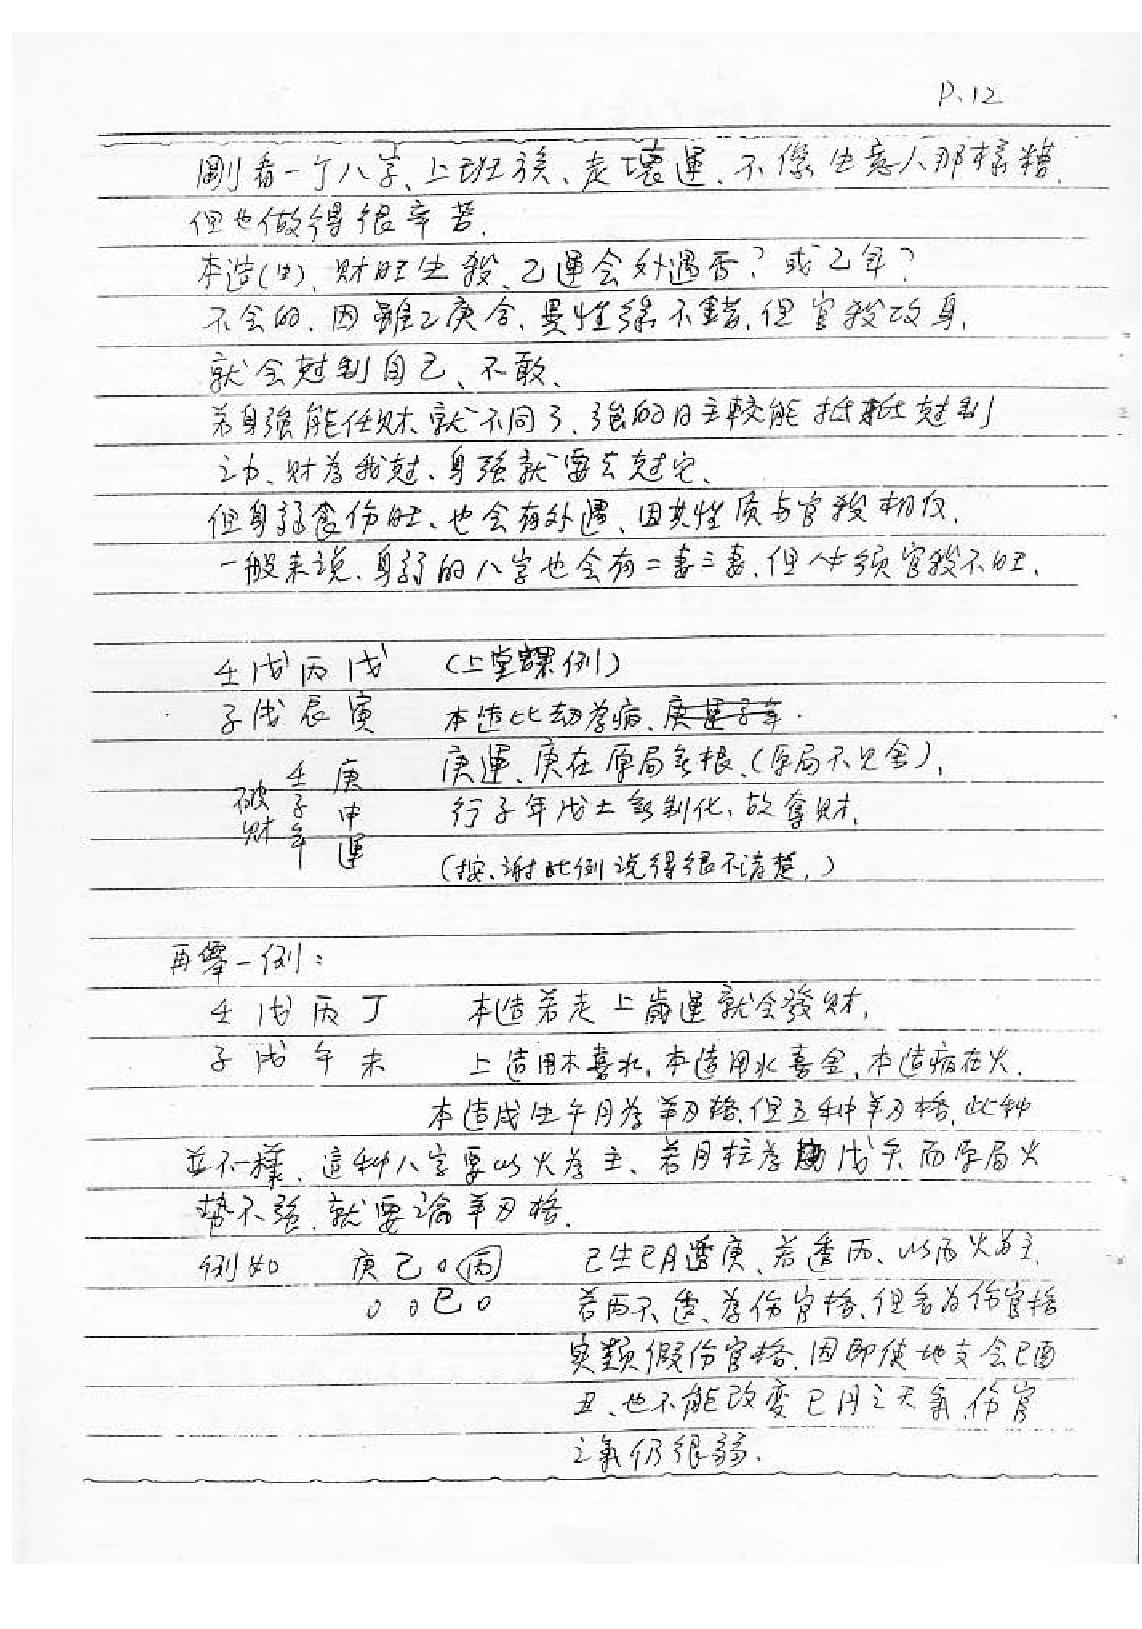 P.12
剛看一个八字、上班族、走壞運、不像生意人那樣糟.
但也做得很辛苦.
本造(由)、財旺生殺、乙運会外遇否？或乙年？
不会的、因雖乙庚合、異性緣不錯、但官殺攻身、
就会尅制自己、不敢、
若身強能任財、就不同了、強的日主較能抵抵尅制
之力、財為我尅、身強就要去尅它、
但身弱食伤旺、也会有外遇、因其性质与官殺相仅.
一般来說、身弱的八字也会有二妻三妻、但必須官殺不旺.
壬戊丙戊 (上堂課例)
子戌辰寅 本造比劫為病、庚運子年.
庚運、庚在原局無根、(原局不見金)、
行子年戊土無制化、故奪財.
破財 壬子年 庚申運
(按、謝此例説得很不清楚.)
再舉一例：
壬戊丙丁 本造若走上歲運就会發財.
子戌午未 上造用木喜水、本造用水喜金、本造病在火.
本造戊生午月為羊刃格、但五种羊刃格、此种
並不一樣、這种八字要以火為主、若月柱為戊午而原局火
勢不強、就要論羊刃格.
例如 庚己○丙 己生巳月透庚、若透丙、以丙火為主.
○○巳○ 若丙不透、為伤官格、但名為伤官格
実類假伤官格、因即使地支会巳酉
丑、也不能改变巳月之天氣、伤官
之氣仍很弱.